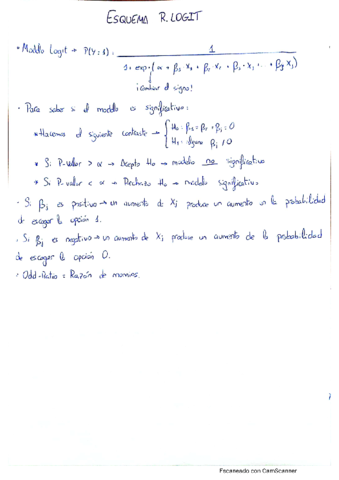 ESQUEMA R.LOGIT
• Modelo Logit → P(Y=1) = 1
1+ exp-(α + β₁ X₁ + β₂ X₂ + β₃ X₃ + ... + βj Xj)
¡cambiar el signo!
• Para saber si el modelo es significativo:
* Hacemos el siguiente contraste → { H₀: β₁ = β₂ = β₃ = 0
H₁: alguno βj ≠ 0
* Si P-valor > α → Acepto H₀ → modelo no significativo
* Si P-valor < α → Rechazo H₀ → modelo significativo
• Si βj es positivo → un aumento de Xj produce un aumento en la probabilidad
de escoger la opción 1.
• Si βj es negativo → un aumento de Xj produce un aumento de la probabilidad
de escoger la opción 0.
• Odd-Ratio = Razón de
Escaneado con CamScanner